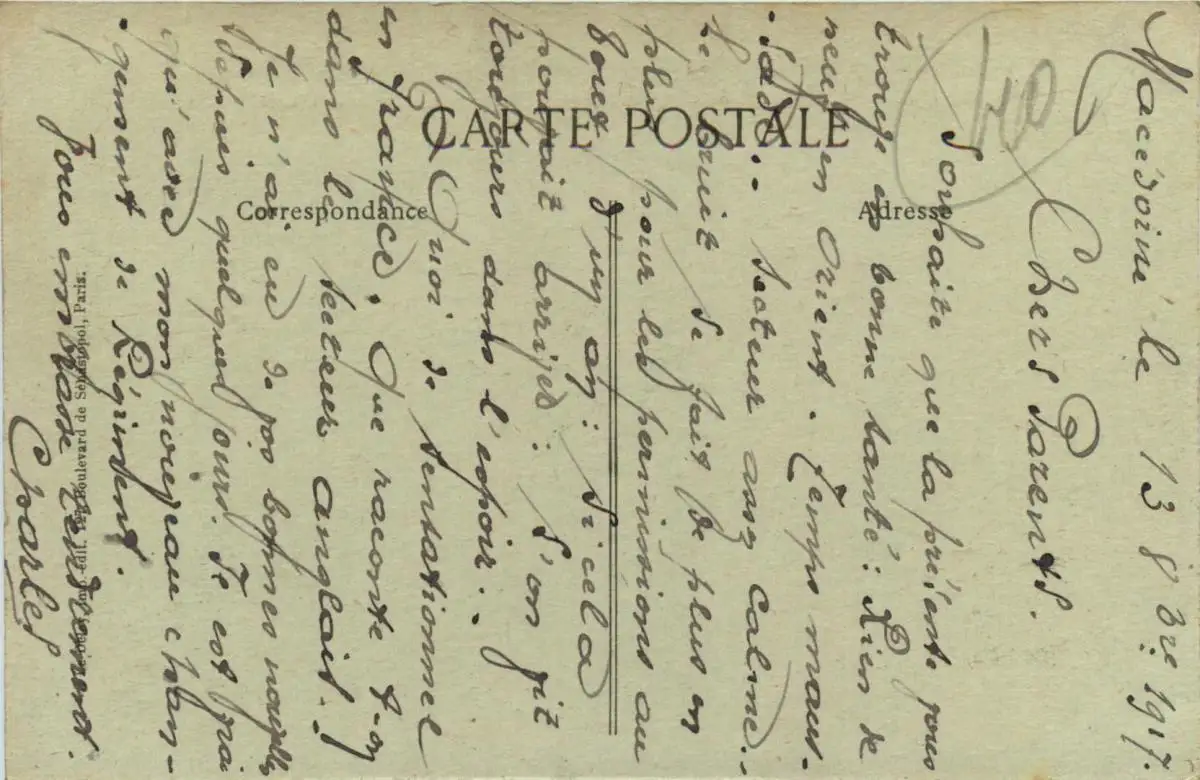 Macédoine le 13 8bre 1917.
Chers Parents.
Souhaite que la présente vous
trouve en bonne santé : Rien de
neuf en Orient. Temps maus-
sade. Secteur assez calme.
Le bruit se fait de plus en
plus pour les permissions au
bout d'un an : si cela
pouvait arriver : l'on vit
toujours dans l'espoir.
Quoi de sensationnel
en France. Que raconte t-on
dans le secteur anglais.
Je n'ai eu de vos bonnes nouvelles
depuis quelques jours. Il est vrai
qu'avec mon nouveau chan-
gement de Régiment.
Vous embrasse tendrement.
Charles
CARTE POSTALE
Correspondance
Adresse
40
édit. Boulevard de Sébastopol, Paris.